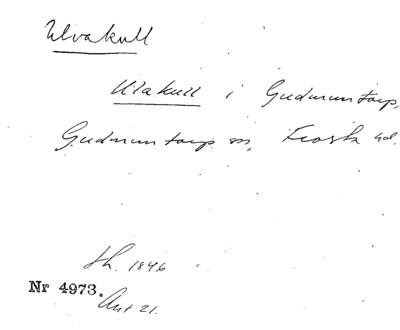 Ulvakull
Ulakull i Gudmuntorp,
Gudmuntorp sn, Frosta hd.
th. 1846
Nr 4973.
Ant 21.